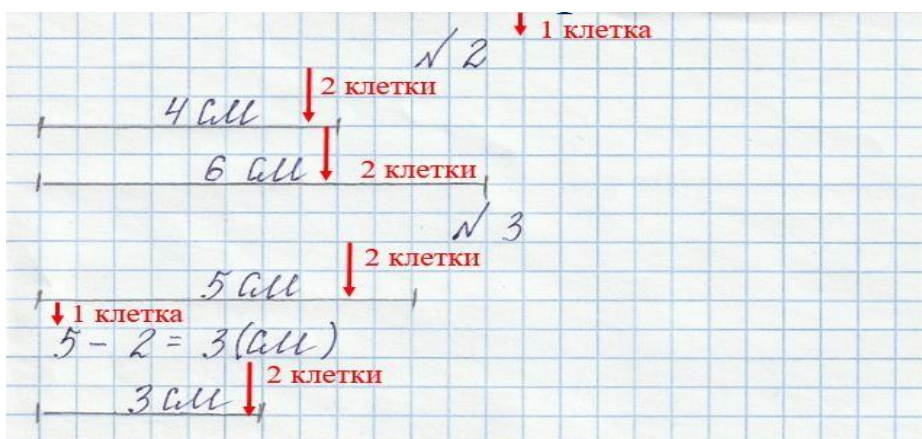 1 клетка
№ 2
2 клетки
4 см
6 см 2 клетки
№ 3
2 клетки
5 см
1 клетка
5 - 2 = 3 (см)
2 клетки
3 см